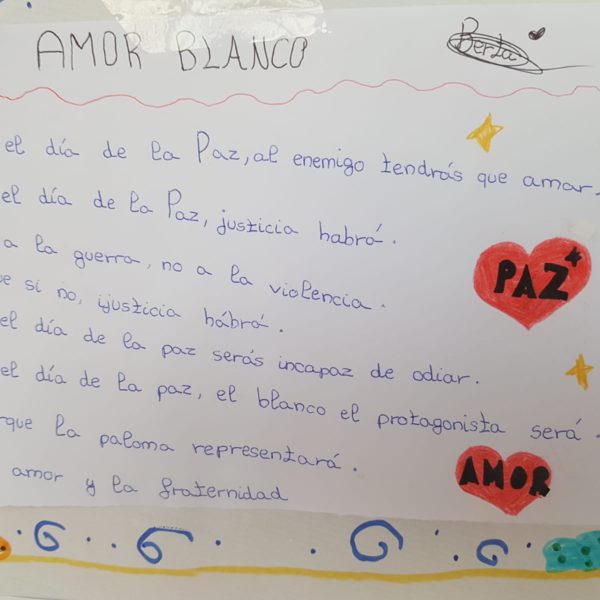 AMOR BLANCO
Berta
el día de la Paz, al enemigo tendrás que amar.
el día de la Paz, justicia habrá.
a la guerra, no a la violencia.
ue si no, ijusticia hábrá.
el día de la paz serás incapaz de odiar.
el día de la paz, el blanco el protagonista será.
rque la paloma representará.
amor y la fraternidad
PAZ
AMOR